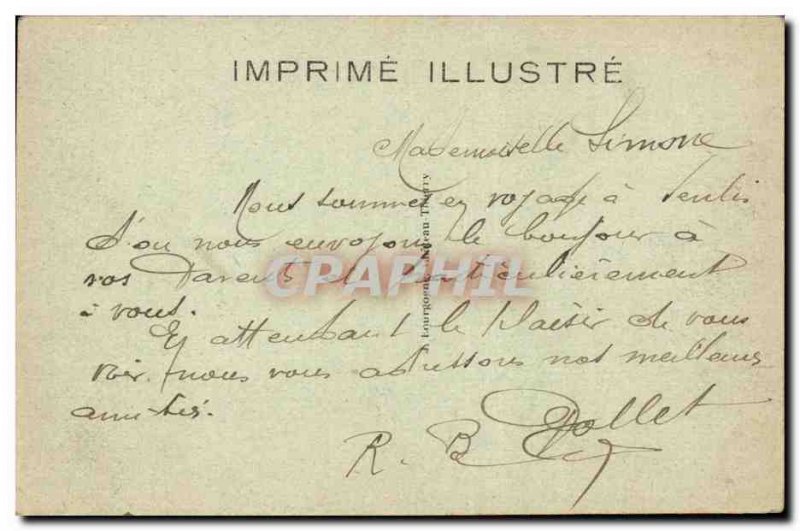 IMPRIMÉ ILLUSTRÉ
Mademoiselle Simone
Nous sommes en voyage à Senlis
d'ou nous envoyons le bonjour à
vos Parents et Particulièrement
à vous.
En attendant le Plaisir de vous
voir nous vous adressons nos meilleurs
amitiés.
R. B Dollet
CRAPHIL